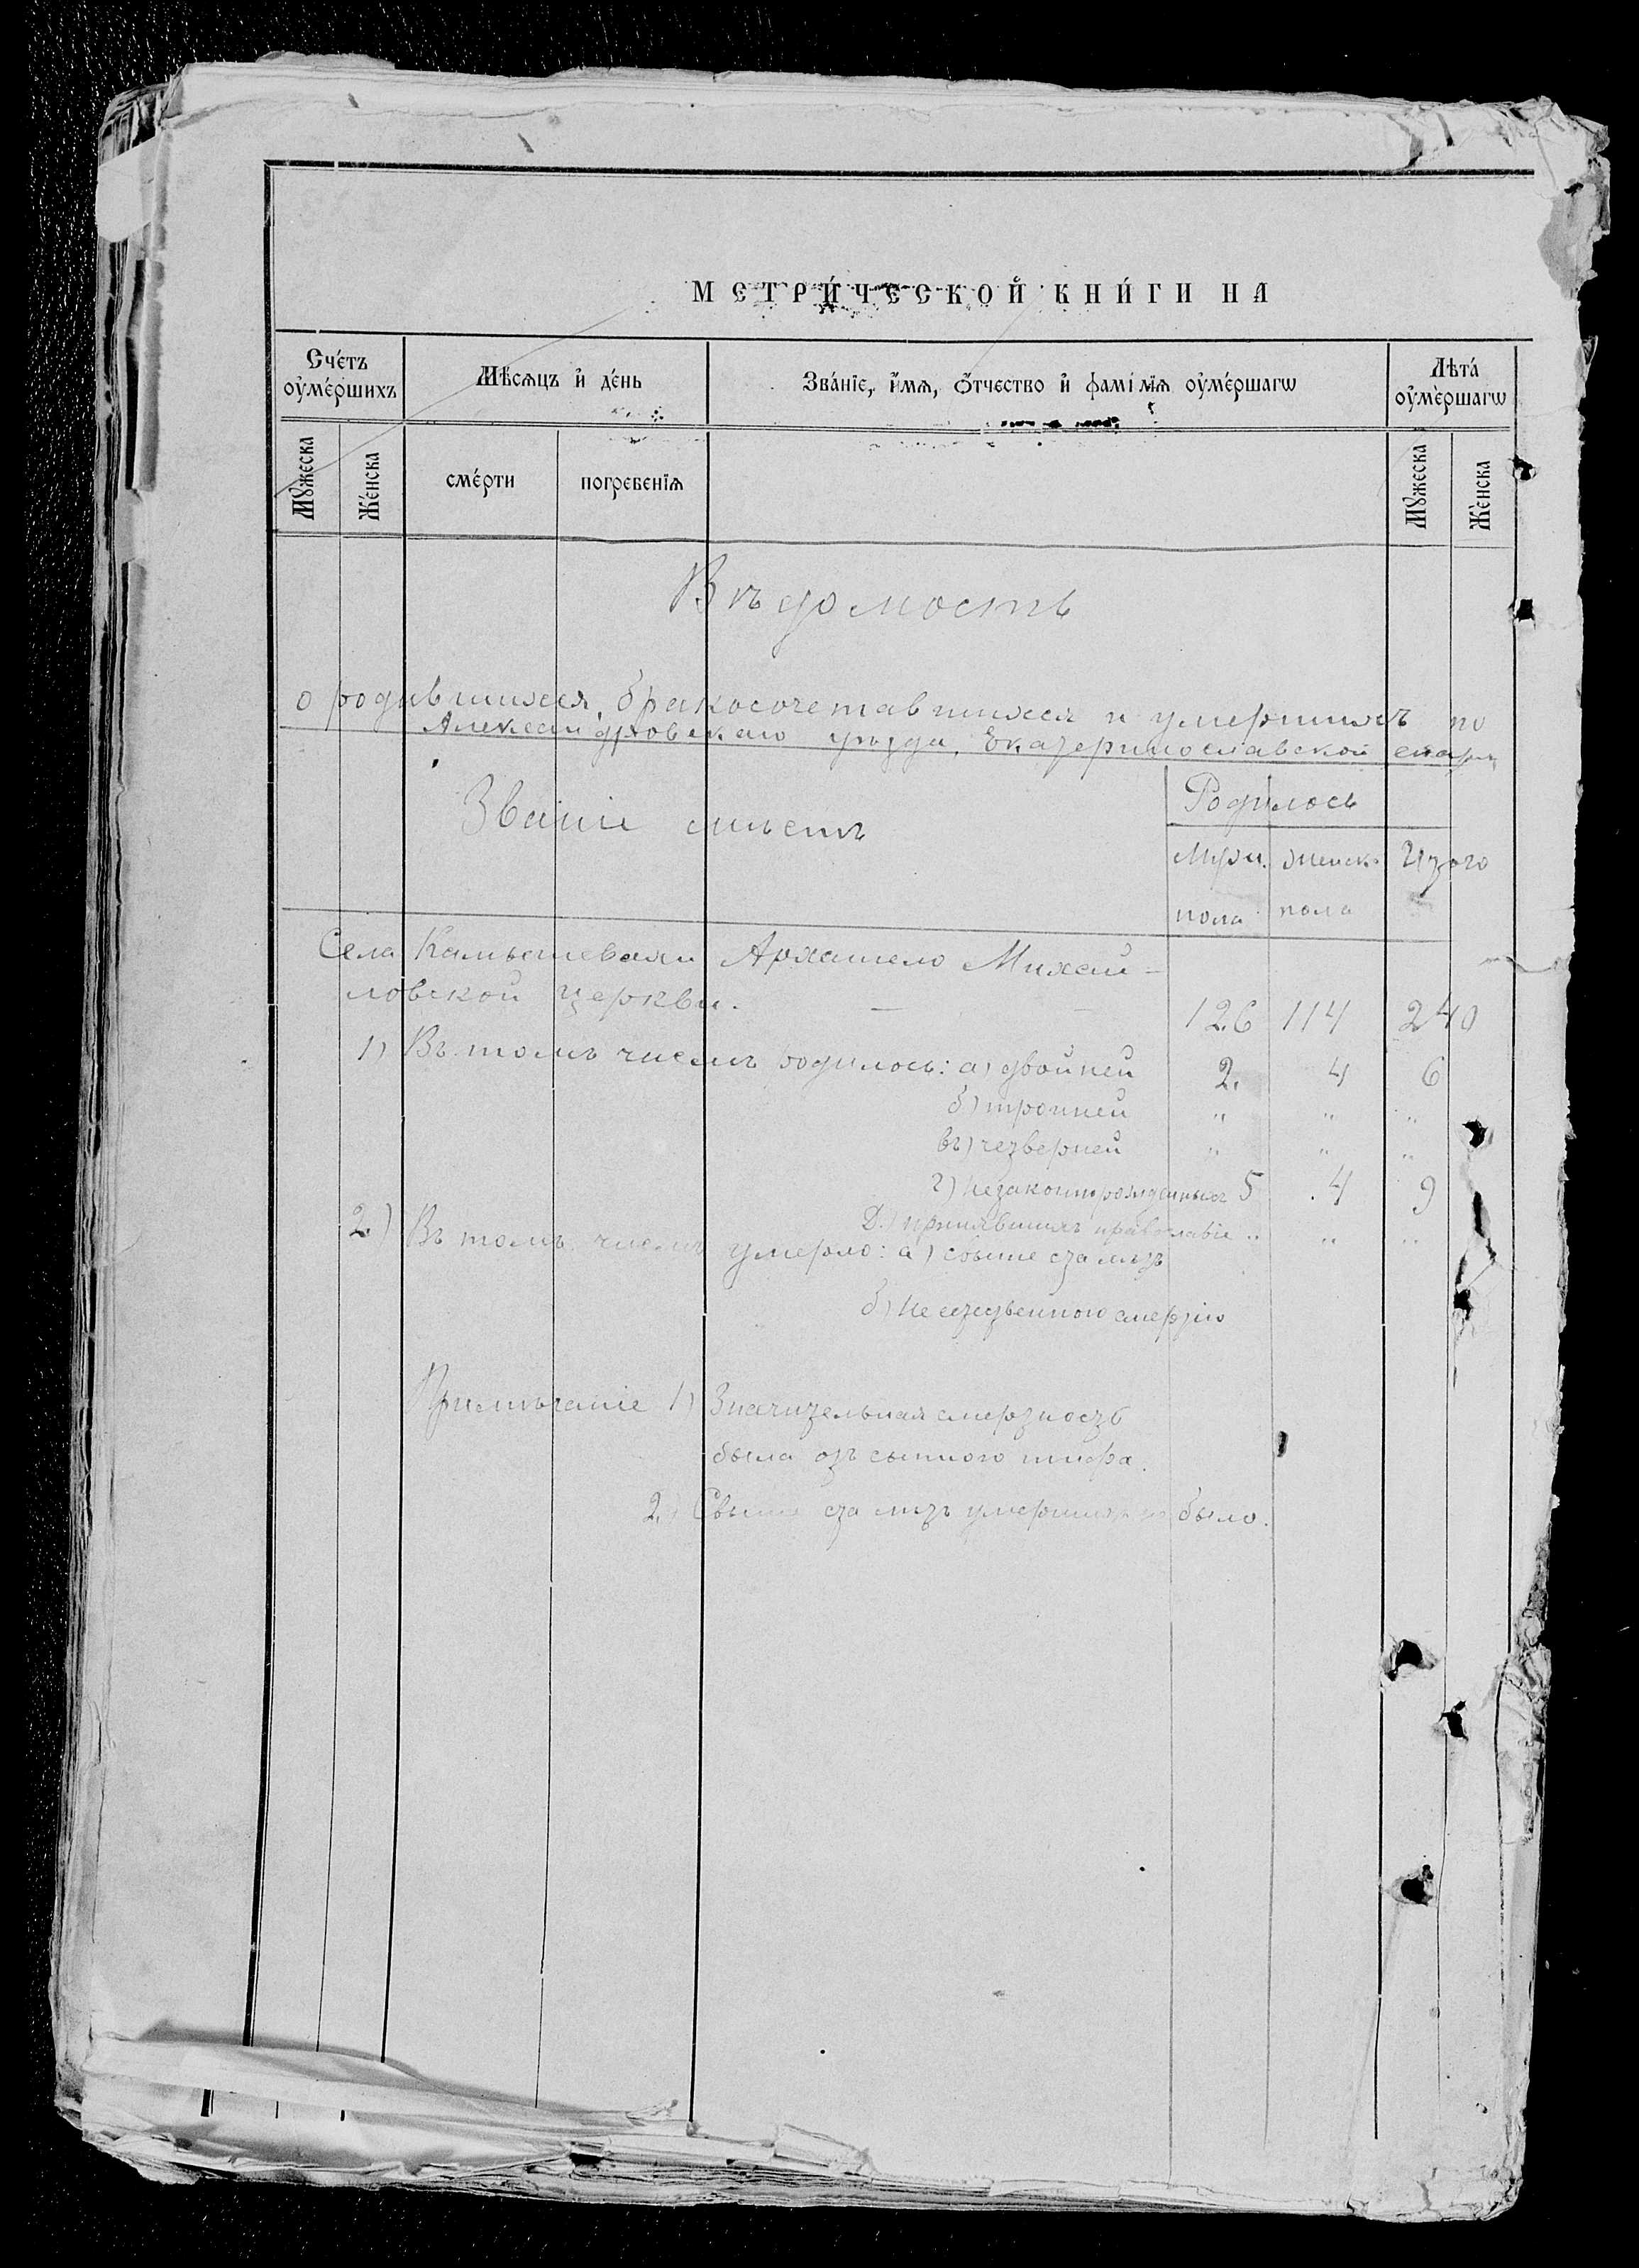 МЕТРИ́ЧЕСКОЙ КНИ́ГИ НА
Сче́тъ ᲂу҆ме́ршихъ
Мѣ́сѧцъ и҆ де́нь
Зва́нїе, и҆́мѧ, ѻ҆́тчество и҆ фамі́лїѧ ᲂу҆ме́ршагѡ
Лѣта́ ᲂу҆ме́ршагѡ
Мꙋжеска
Же́нска
сме́рти
погребенїѧ
Мꙋжеска
Же́нска
Вѣдомость
о родившихся, бракосочетавшихся и умершихъ по
Александровскаго уѣзда, Екатеринославской епарх
Званіе мѣстъ
Родилось
Муж. женск. Итого
пола пола
Села Камышевахи Архангело Михай-
ловской церкви. — — 126 114 240
1) Въ томъ числѣ родилось: а) двойней 2. 4 6
б) тройней " " "
въ) четверней " " "
г) незаконнорожденныхъ 5 4 9
д) принявшихъ православіе " " "
2) Въ томъ числѣ умерло: а) свыше ста лѣтъ
б) не естественною смертію
Примѣчаніе 1) Значительная смертность
была отъ сыпного тифа.
2) Свыше ста лѣтъ умершихъ не было.